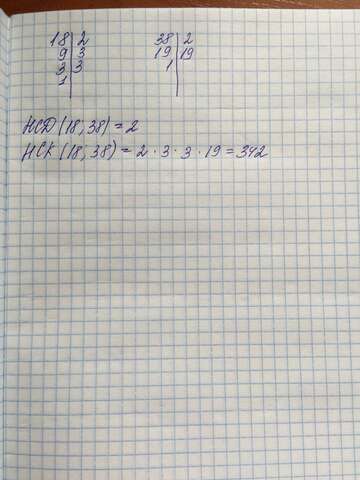 18 | 2 38 | 2
9 | 3 19 | 19
3 | 3 1 |
1 |
НСД (18; 38) = 2
НСК (18; 38) = 2 · 3 · 3 · 19 = 342